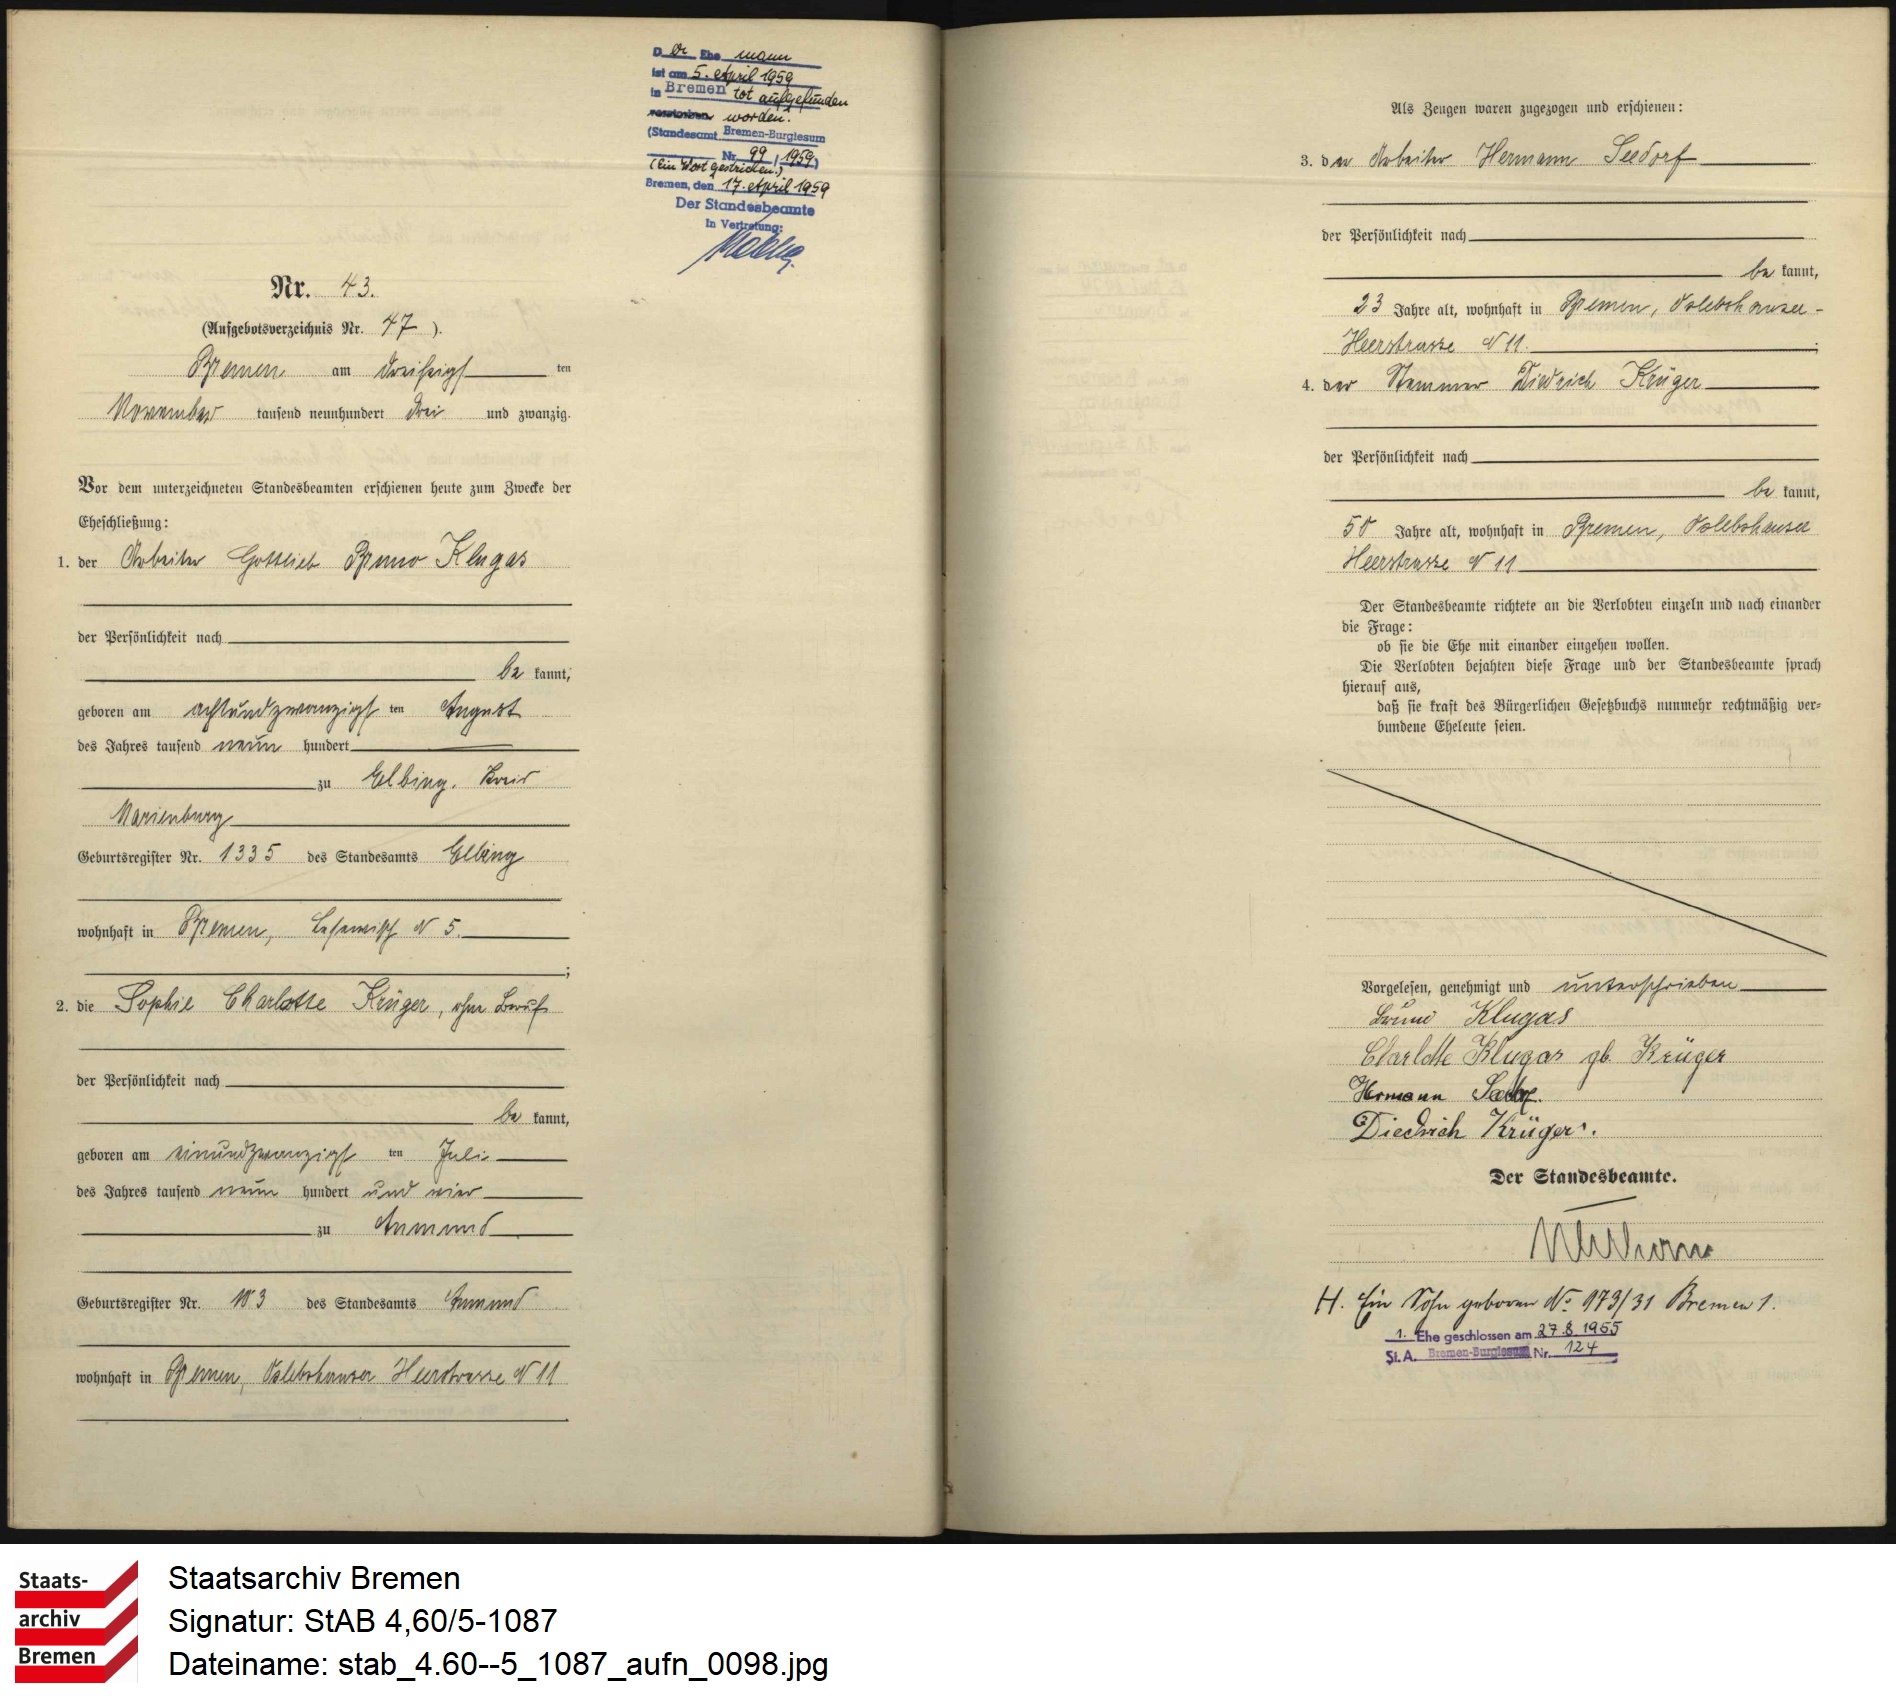 Der Ehe mann
ist am 5. April 1959
in Bremen tot aufgefunden
verstorben worden.
(Standesamt Bremen-Burglesum
Nr. 99 / 1959)
(Ein Wort gestrichen.)
Bremen, den 17. April 1959
Der Standesbeamte
In Vertretung:
Nr. 43.
(Aufgebotsverzeichnis Nr. 47 ).
Bremen am dreißigs ten
November tausend neunhundert drei und zwanzig.
Vor dem unterzeichneten Standesbeamten erschienen heute zum Zwecke der
Eheschließung:
1. der Arbeiter Gottlieb Bruno Klugas
der Persönlichkeit nach
be kannt,
geboren am achtundzwanzigs ten August
des Jahres tausend neun hundert
zu Elbing, Kreis
Marienburg
Geburtsregister Nr. 1335 des Standesamts Elbing
wohnhaft in Bremen, N 5.
;
2. die Sophie Charlotte Krüger, ohne Beruf
der Persönlichkeit nach
be kannt,
geboren am einundzwanzigs ten Juli
des Jahres tausend neun hundert und vier
zu Aumund
Geburtsregister Nr. 103 des Standesamts Aumund
wohnhaft in Bremen, Oslebshauser Heerstrasse N 11
Als Zeugen waren zugezogen und erschienen:
3. der Arbeiter Hermann Seedorf
der Persönlichkeit nach
be kannt,
23 Jahre alt, wohnhaft in Bremen, Oslebshauser-
Heerstrasse N 11.
;
4. der Stemmer Diedrich Krüger
der Persönlichkeit nach
be kannt,
50 Jahre alt, wohnhaft in Bremen, Oslebshauser
Heerstrasse N 11
Der Standesbeamte richtete an die Verlobten einzeln und nach einander
die Frage:
ob sie die Ehe mit einander eingehen wollen.
Die Verlobten bejahten diese Frage und der Standesbeamte sprach
hierauf aus,
daß sie kraft des Bürgerlichen Gesetzbuchs nunmehr rechtmäßig ver-
bundene Eheleute seien.
Vorgelesen, genehmigt und unterschrieben
Bruno Klugas
Charlotte Klugas gb. Krüger
Hermann
Diedrich Krüger.
Der Standesbeamte.
H. Ein Sohn geboren No 973/31 Bremen 1.
1. Ehe geschlossen am 27.8.1955
St.A. Bremen-Burglesum Nr. 124
Staats-
archiv
Bremen
Staatsarchiv Bremen
Signatur: StAB 4,60/5-1087
Dateiname: stab_4.60--5_1087_aufn_0098.jpg